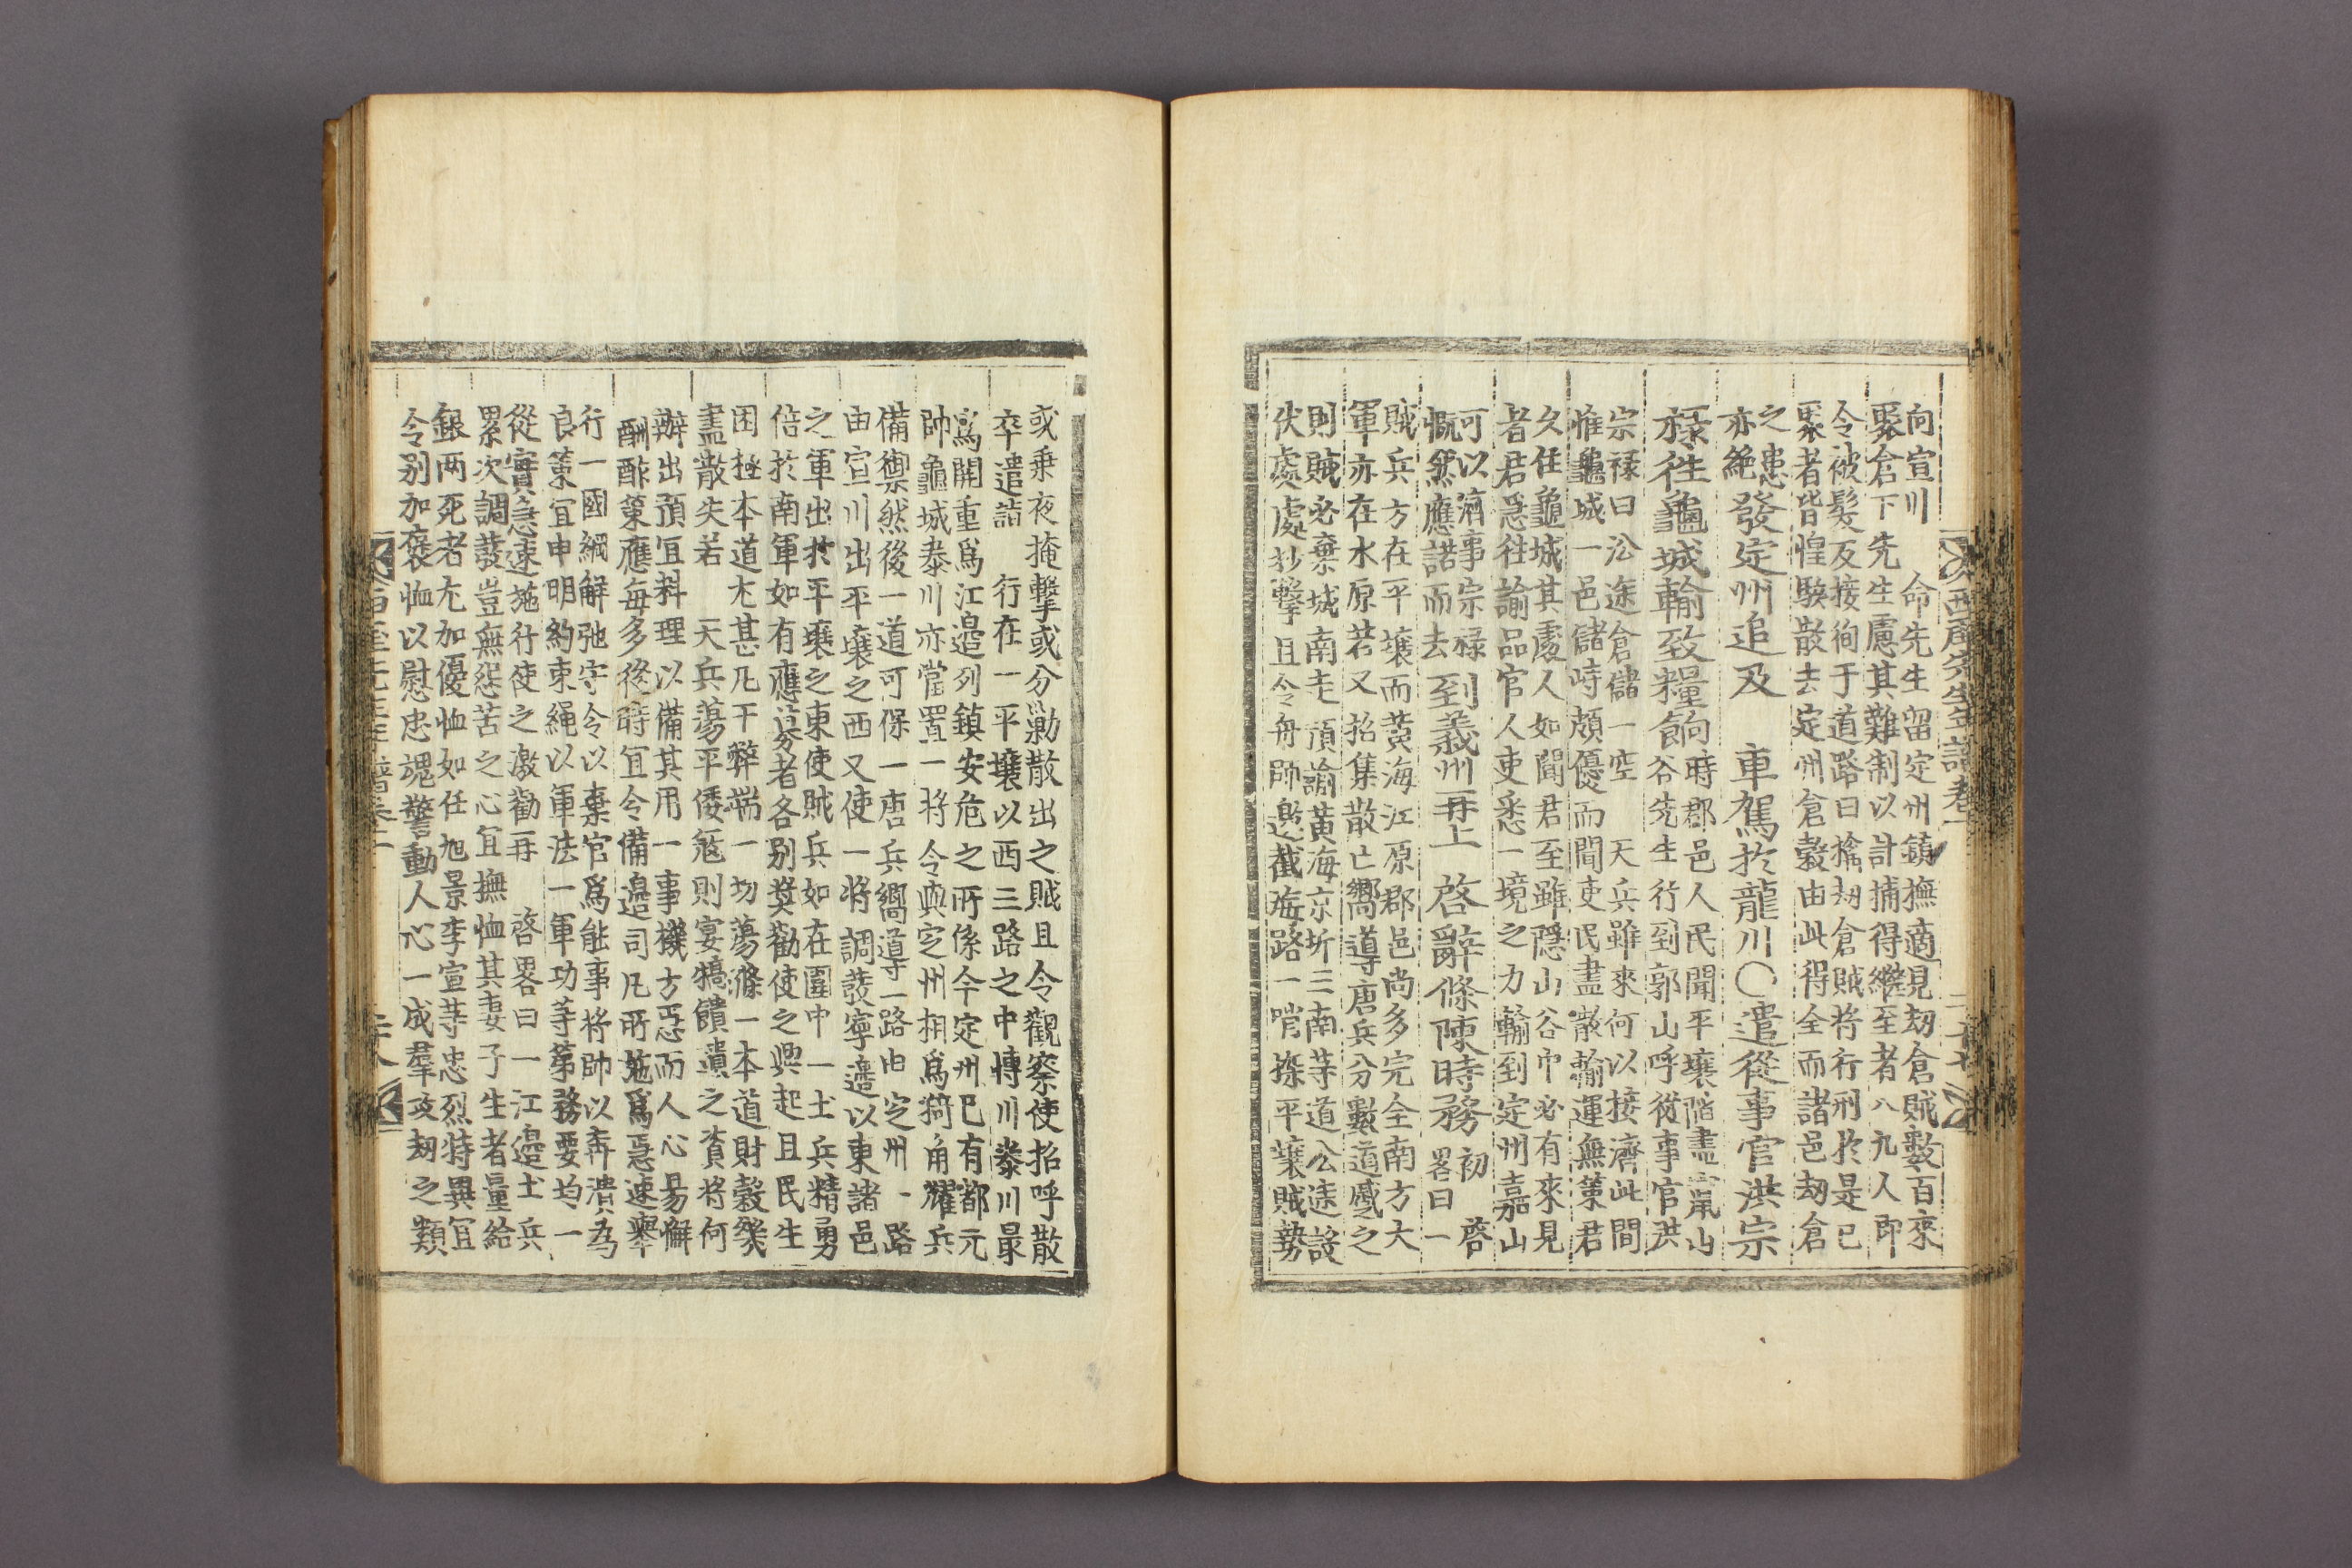 西厓先生年譜卷一 二十七
向宣川 命先生留定州鎮撫適見刼倉賊數百來
聚倉下先生慮其難制以計捕得繼至者八九人即
令被髮反接徇于道路曰擒刼倉賊將行刑於是已
聚者皆惶駭散去定州倉穀由此得全而諸邑刼倉
之患
亦絶
發定州追及 車駕於龍川○遣從事官洪宗
祿徃龜城輸致糧餉
時郡邑人民聞平壤陷盡竄山
谷先生行到郭山呼從事官洪
宗祿曰沿途倉儲一空 天兵雖來何以接濟此間
惟龜城一邑儲峙頗優而聞吏民盡散輸運無策君
久任龜城其處人如聞君至雖隱山谷中必有來見
者君急往諭品官人吏悉一境之力輸到定州嘉山
可以濟事宗祿
慨然應諾而去
到義州再上 啓辭條陳時務
初 啓
畧曰一
賊兵方在平壤而黃海江原郡邑尚多完全南方大
軍亦在水原若又招集散亡嚮導唐兵分數道蹙之
則賊必棄城南走湏諭黃海京圻三南等道公途設
伏處處抄擊且令舟師邀截海路一哨 平壤賊勢
或乗夜掩擊或分勦散出之賊且令觀察使招呼散
卒遣詣 行在一平壤以西三路之中博川泰川最
爲關重爲江邉列鎮安危之所係今定州已有都元
帥龜城泰川亦當置一將令與定州相爲犄角耀兵
備禦然後一道可保一唐兵嚮導一路由定州一路
由宣川出平壤之西又使一將調發寧邉以東諸邑
之軍出於平壤之東使賊兵如在圍中一土兵精勇
倍於南軍如有應募者各别奬勸使之興起且民生
困極本道尤甚凡干弊端一切蕩滌一本道財穀幾
盡散失若 天兵蕩平倭寇則宴犒饋遺之資將何
辦出預宜料理以備其用一事機方惡而人心易懈
酬酢策應每多後時宜令備邉司凡所施爲急速舉
行一國綱解弛守令以棄官爲能事將帥以奔潰為
良策宜申明約束繩以軍法一軍功等第務要均一
從實急速施行使之激勸再 啓畧曰一江邉土兵
累次調發豈無怨苦之心宜撫恤其妻子生者量給
銀两死者尤加優恤如任旭景李宣等忠烈特異宜
令别加襃恤以慰忠魂警動人心一成羣攻刼之類
二十八